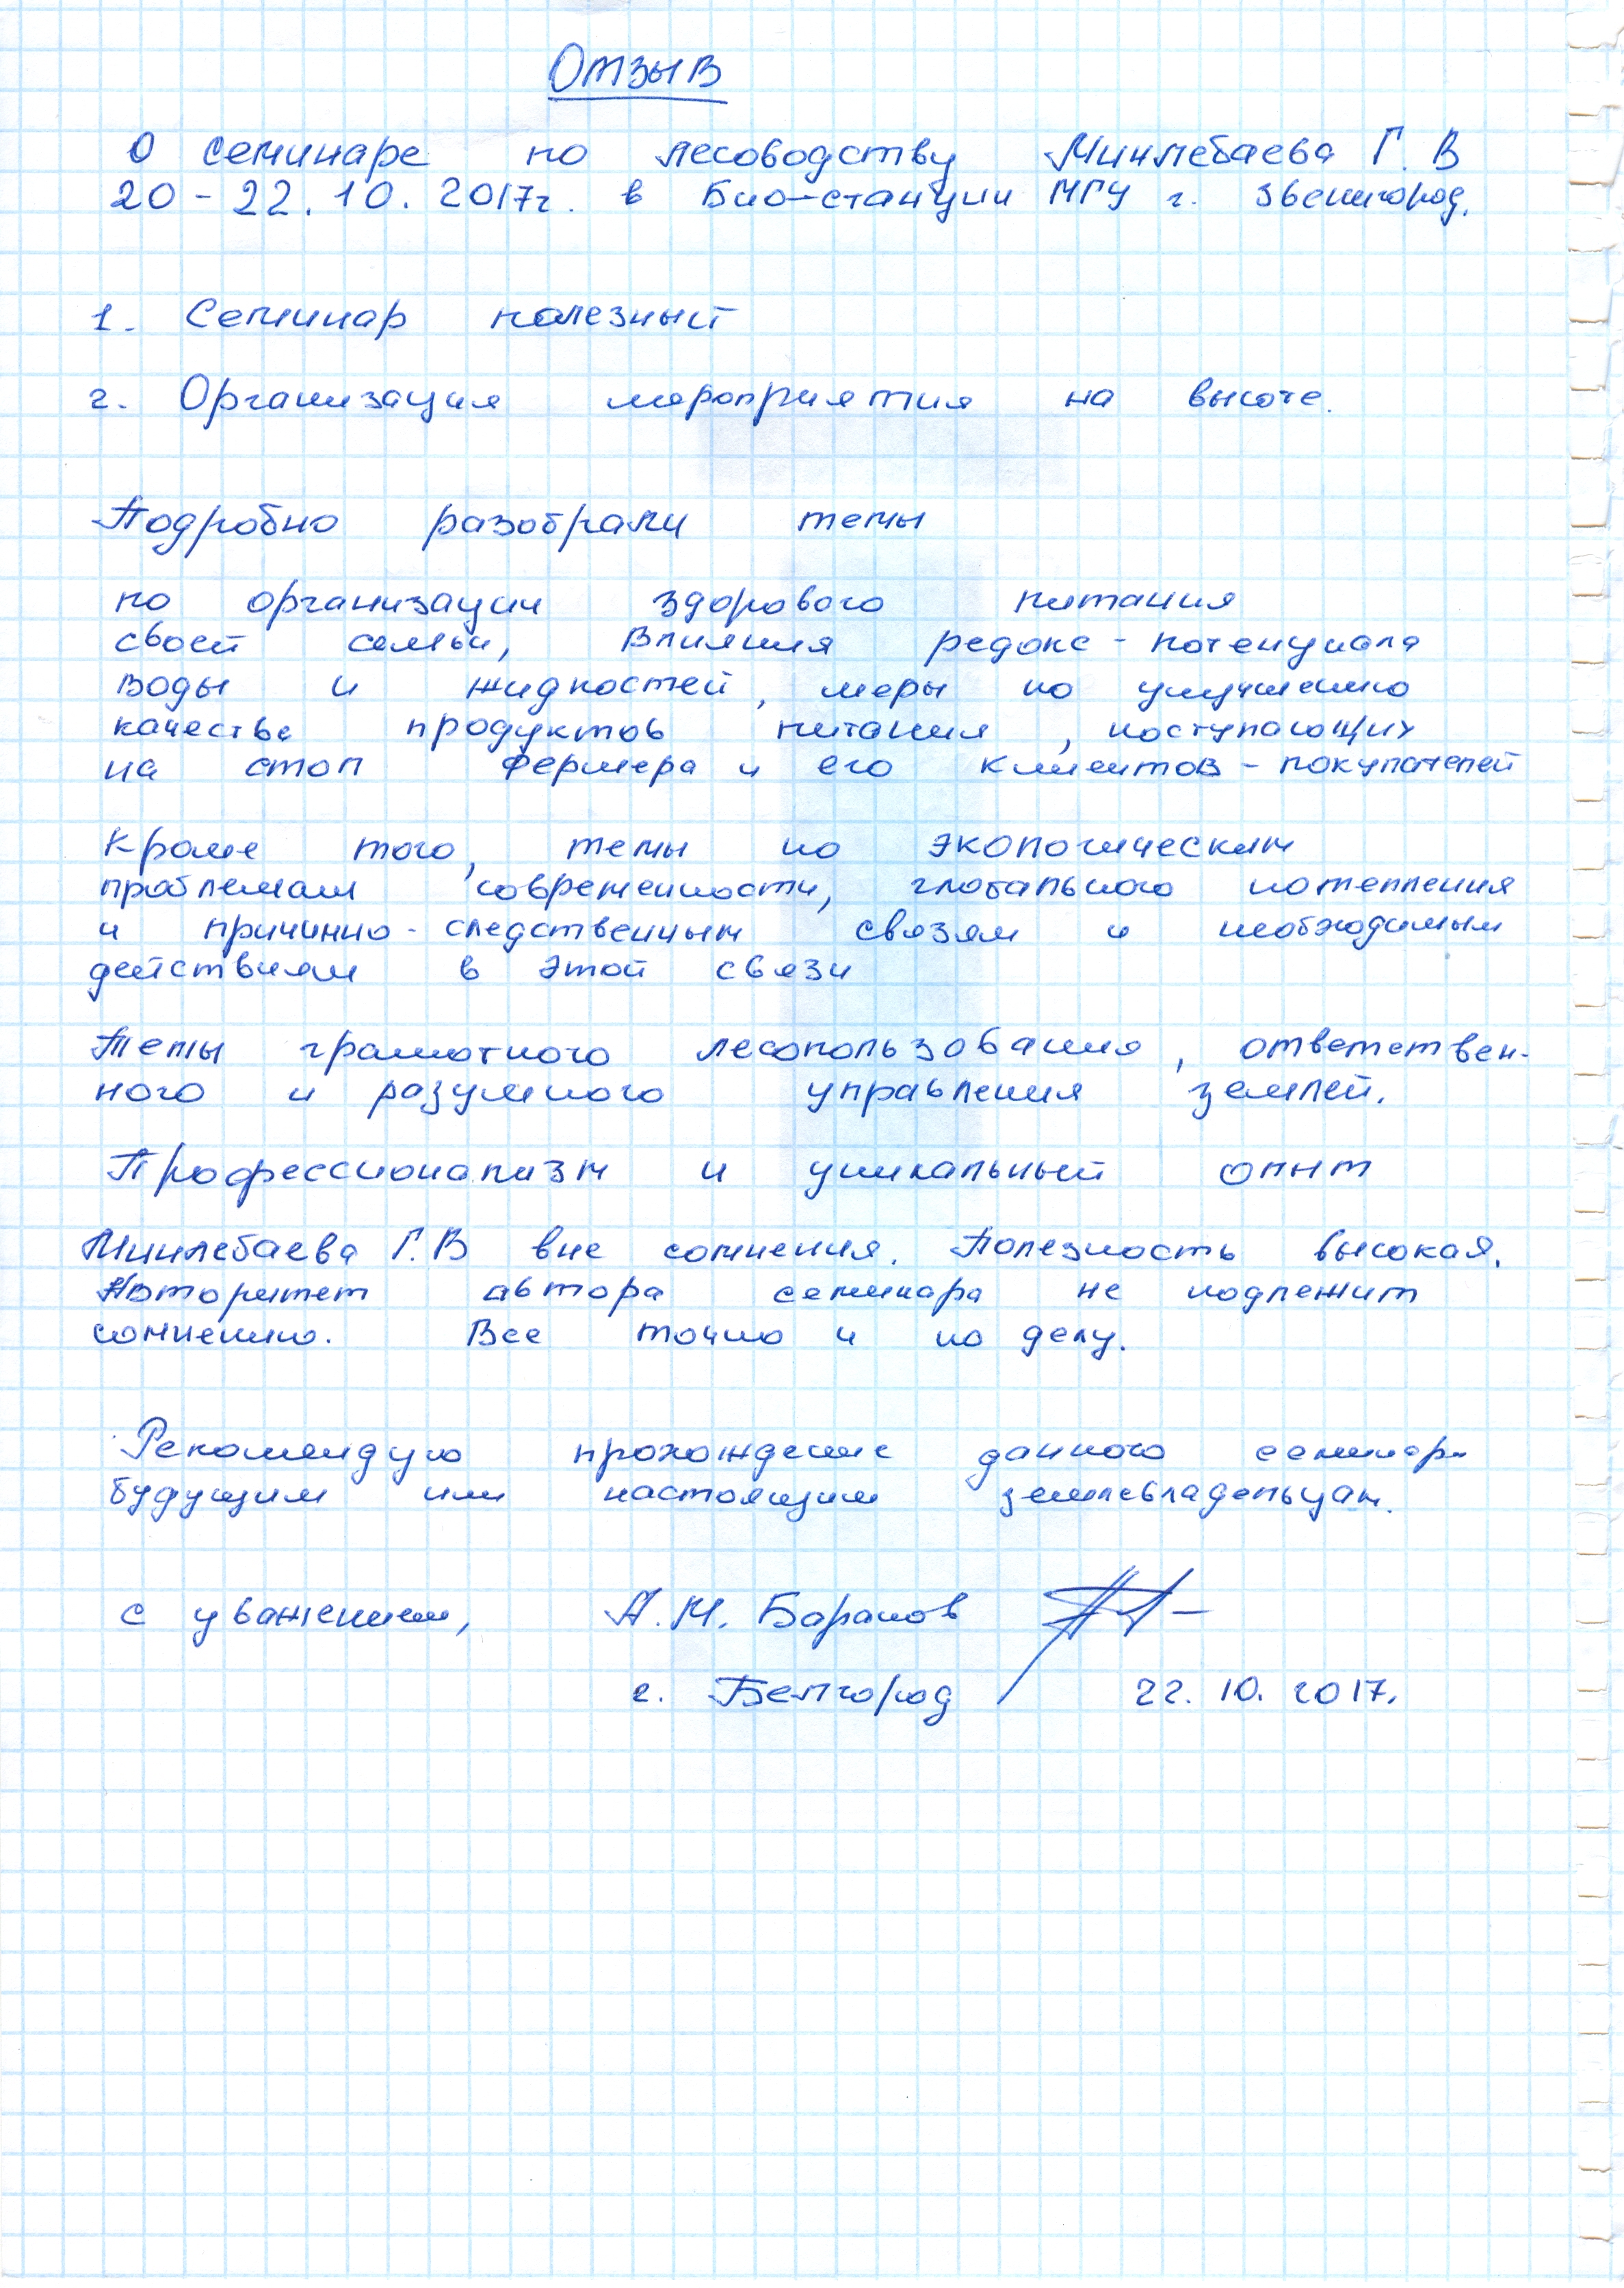 Отзыв
О семинаре по лесоводству Минлебаева Г. В
20 - 22. 10. 2017г. в Био-станции МГУ г. Звенигород.
1. Семинар полезный
2. Организация мероприятия на высоте.
Подробно разобрали темы
по организации здорового питания
своей семьи, влияния редокс-потенциала
воды и жидкостей, меры по улучшению
качества продуктов питания, поступающих
на стол фермера и его клиентов - покупателей
Кроме того, темы по экологическим
проблемам современности, глобального потепления
и причинно-следственным связям и необходимым
действиям в этой связи
Темы грамотного лесопользования, ответствен-
ного и разумного управления землей.
Профессионализм и уникальный опыт
Минлебаева Г.В вне сомнения. Полезность высокая.
Авторитет автора семинара не подлежит
сомнению. Все точно и по делу.
Рекомендую прохождение данного семинара
будущим или настоящим землевладельцам.
С уважением, А.М. Баранов
г. Белгород 22. 10. 2017.